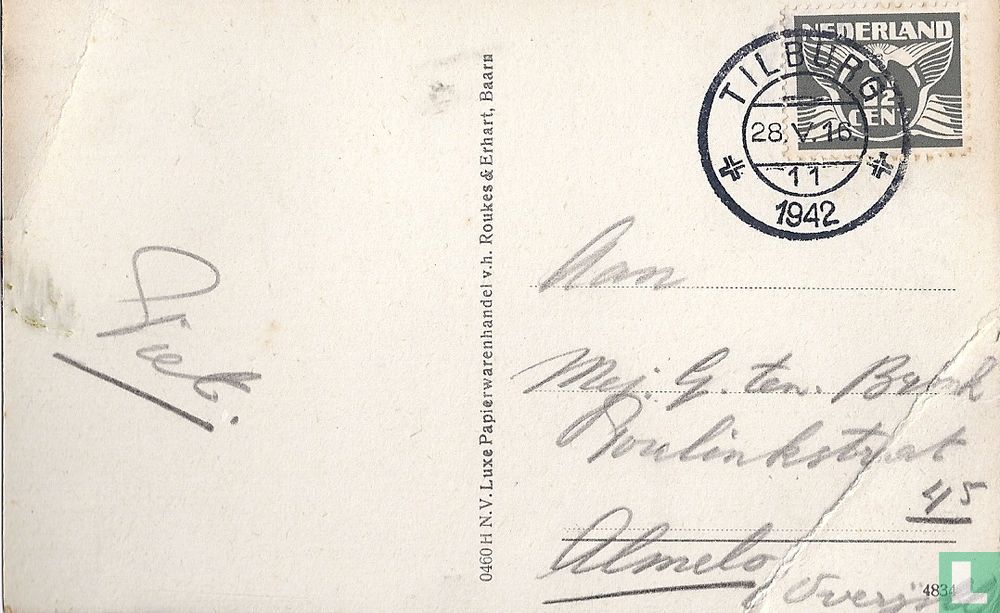 NEDERLAND
CENT
TILBURG
28.V.16.
11
1942
0460 H N.V. Luxe Papierwarenhandel v.h. Roukes & Erhart, Baarn
Piet.
Aan
Mej. G. ten. Brink
45
Almelo
4834